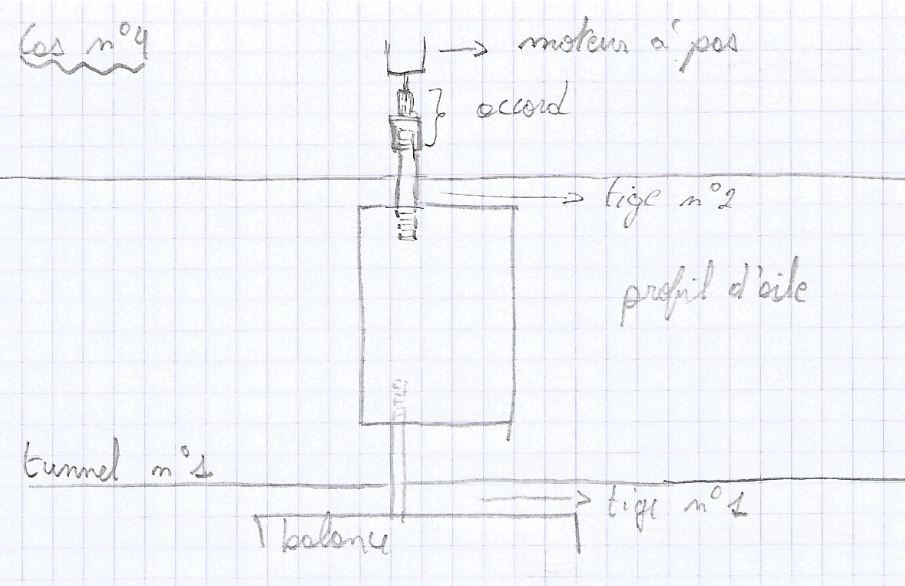 Cas n°4
moteur à pas
accord
tige n°2
profil d'aile
tunnel n°1
tige n°1
balance